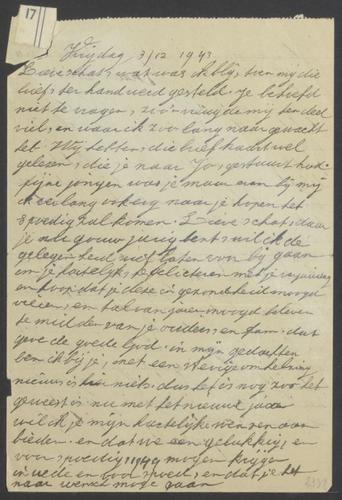 17
Vrijdag 3/12 1943
Lieve schat, wat was ik blij, toen mij die
brief, ter hand werd gesteld. Je behoeft
niet te vragen, zoo'n vreugde mij ten deel
viel, en waar ik zoo lang naar gewacht
heb. Wij hebben, die brief haast wel
gelezen, die je naar Jo, gestuurt heb.
fijne jongen was je maar aan bij mij
ik verlang ook erg naar je hopen het
spoedig zal komen. Lieve schat, daar
je nu gouw jarig bent wil ik de
gelegenheid niet laten voor bij gaan
om je hartelijk te feliciteren met je verjaardag
en hoop dat je deze in gezondheid moogd
vieren, en tal van jaren moogd beleven
te midden van je ouders, en fam, dat
geve de goede God. in mijn gedachten
ben ik bij je, met een stevige omhelzing
nieuws is hier niets, dus het is nog zoo het
geweest is nu met het nieuwe jaar
wil ik je mijn hartelijke wenzen aan
bieden. en dat we een gelukkig, en
voor spoedig 1944 mogen krijgen
in vrede en voorspoed, en dat je het
naar wensch moge gaan